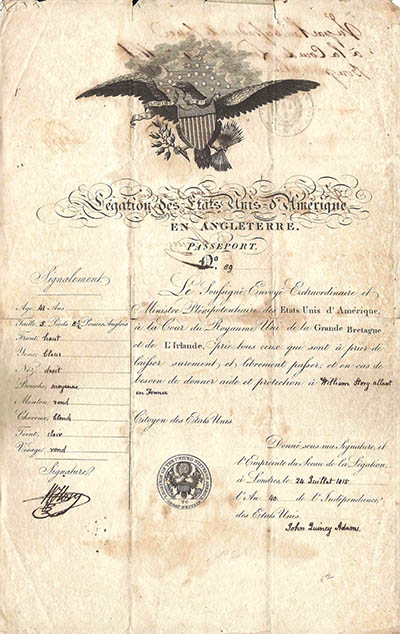 Légation des Etats Unis d'Amérique
EN ANGLETERRE.
PASSEPORT.
N° 89
Signalement
Age 41 Ans
Taille 5 Pieds Pouces Anglois
Front haut
Yeux bleus
Nez droit
Bouche moyenne
Menton rond
Cheveux blonds
Teint clair
Visage rond
Signature
Le Soussigné Envoyé Extraordinaire et
Ministre Plénipotentiaire des Etats Unis d'Amérique,
à la Cour du Royaume Uni de la Grande Bretagne
et de L'Irlande, prie tous ceux qui sont à prier de
laisser surement et librement passer, et en cas de
besoin de donner aide et protection à William Story allant
en France
Citoyen des Etats Unis
Donné sous ma Signature, et
l'Empreinte du Sceau de la Légation,
à Londres le 24 Juillet 1815
l'An 40 de l'Indépendance
des Etats Unis.
John Quincy Adams.